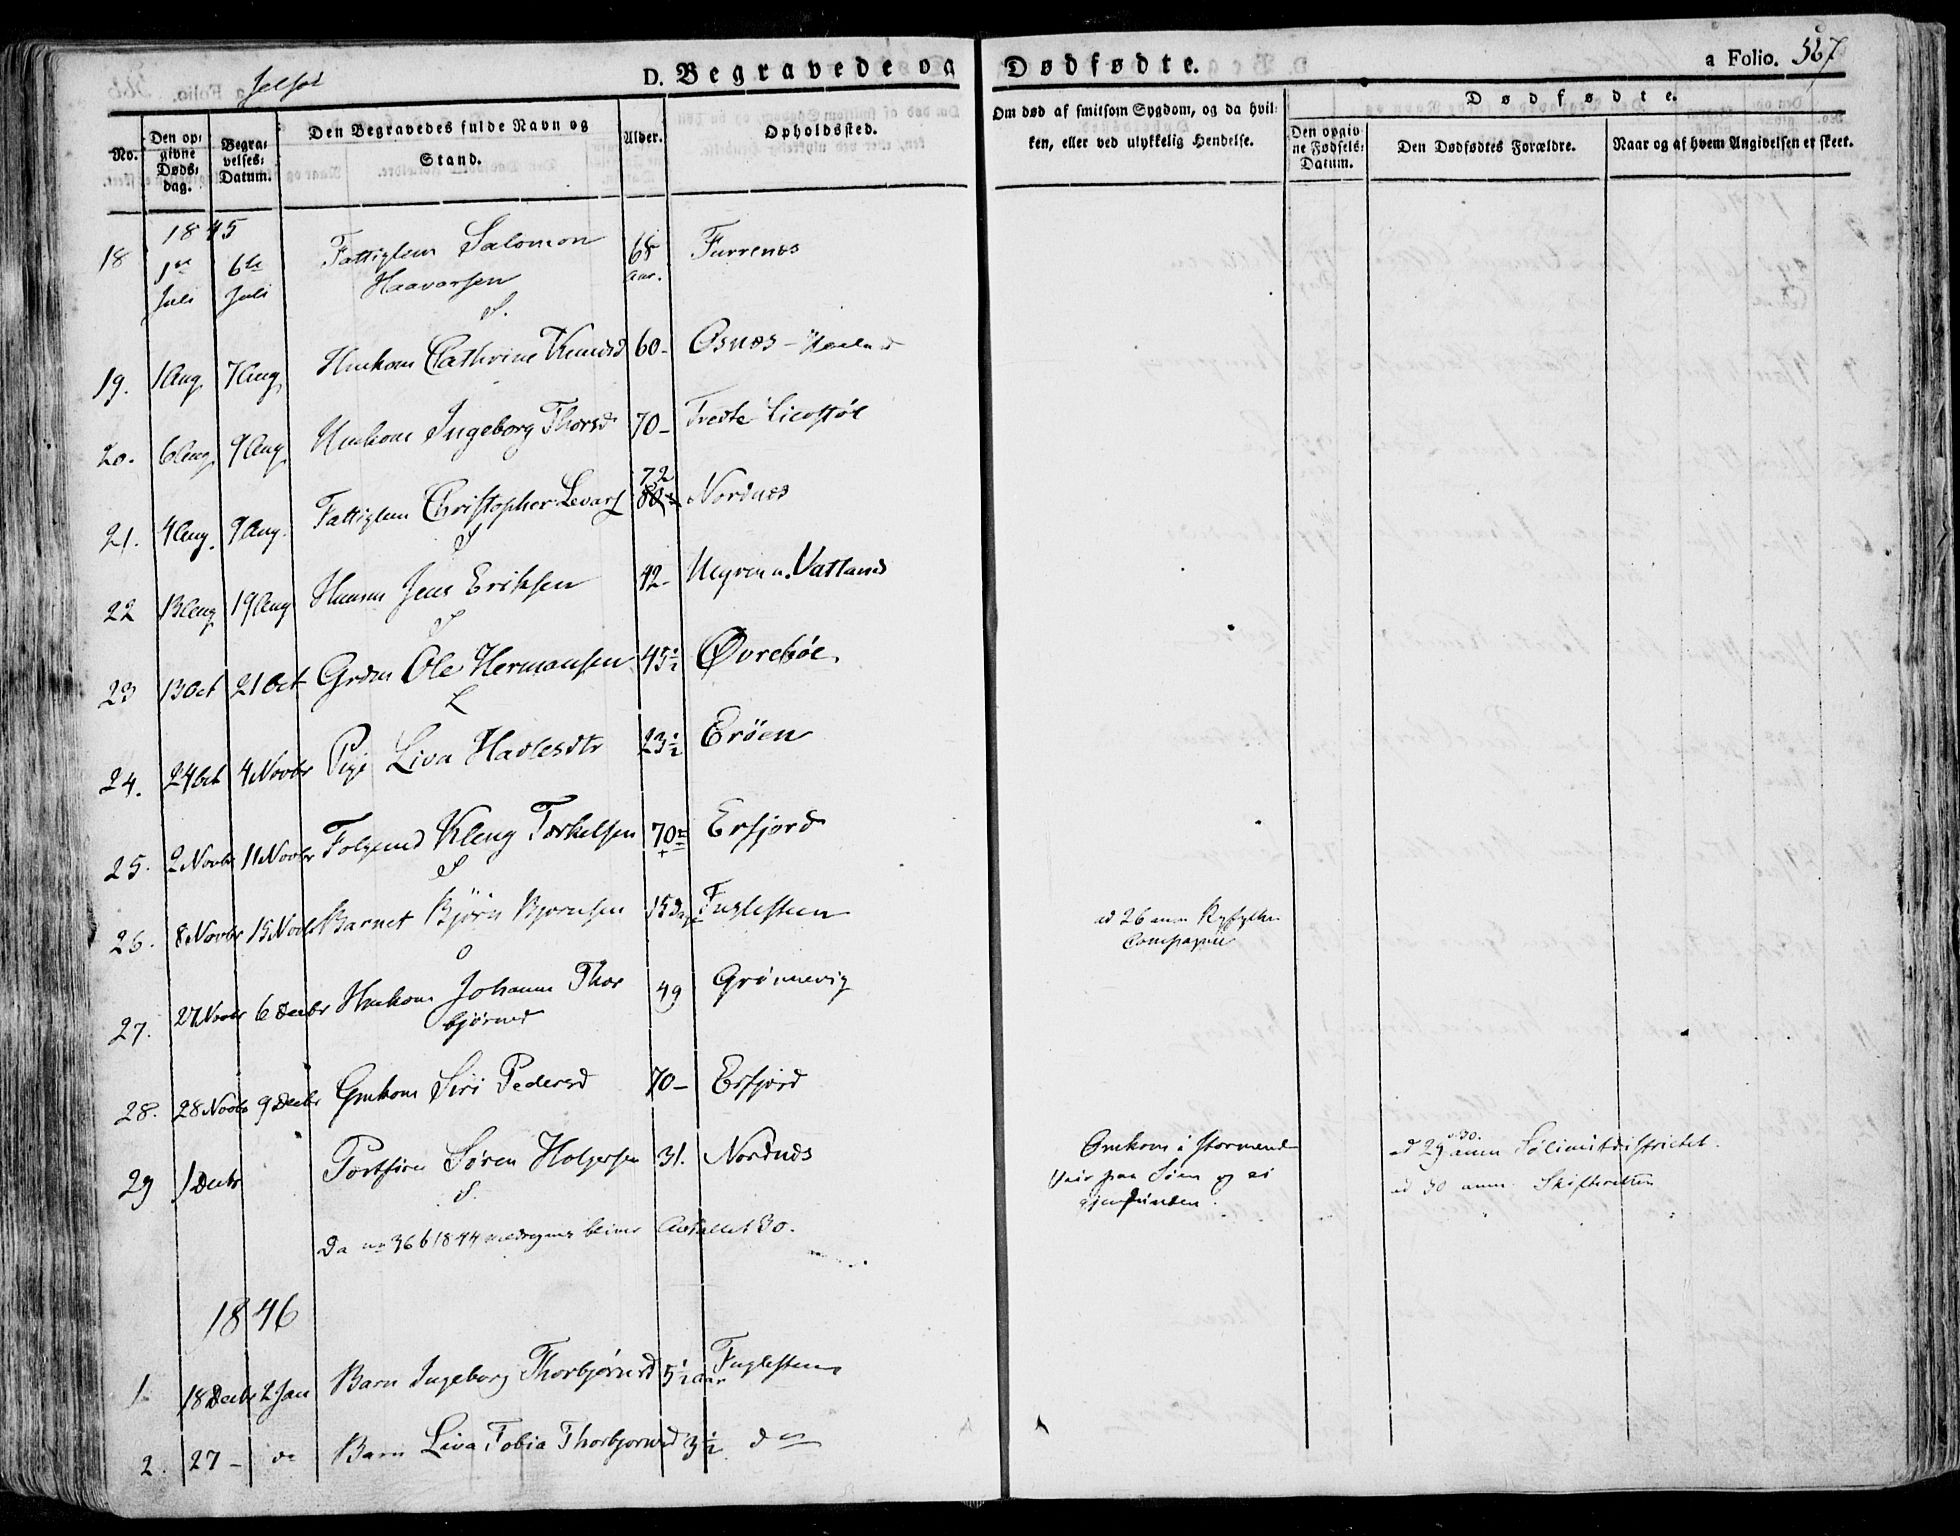 Jelsøe
D. Begravede og Dødfødte.
a Folio. 567
No.
Den opgivne Døds-dag.
Begravelses-Datum.
Den Begravedes fulde Navn og Stand.
Alder.
Opholdssted.
Om død af smitsom Sygdom, og da hvilken, eller ved ulykkelig Hendelse.
Dødfødte.
Den opgivne Fødsels-Datum.
Den Dødfødtes Forældre.
Naar og af hvem Angivelsen er skeet.
1845
18 1ste Juli 6te Juli Fattiglem Salomon Haavorsen 68 Aar. Furrenæs
S.
19. 1 Aug 7 Aug Huskone Cathrine Knudsd 60- Osnæs -
20. 6 Aug 9 Aug Huskone Ingeborg Thorsd 70-
21. 4 Aug. 9 Aug. Fattiglem Christopher Levars 72 80 Nordnæs
S
22 13 Aug 19 Aug Husm Jens Eriksen 42- Vatland
S
23 13 Oct 21 Oct Grdm Ole Hermansen 45½ Øvrebøe.
L
24. 24 Oct 4 Novbr Pige Liva Hadlesdtr 23½ Erøen
25. 2 Novbr 11 Novbr Folgemd Kleng Tørkelsen 70 Erfjord
S
26. 8 Novbr 15 Novbr Barnet Bjørn Bjørnsen 15 Dage Fuglesteen
ad 26 anm Ryfylke Compagnie
27. 27 Novbr 6 Decbr Huskone Johanna Thorbjørnsd 49 Grønnevig
28. 28 Novbr 9 Decbr Gmkone Siri Pedersd 70- Erfjord
29 1 Decbr Søren Holgersen 31. Nordnæs
S.
Omkom i stormende Veir paa Søen og ei gjenfunden.
ad 29 anm SøLimitdistrictet.
ad 30 anm. Skifteretten
Da no 36 b 1844 medregnes bliver Antallet 30.
1846
1. 18 Decbr 2 Jan Barn Ingeborg Thorbjørnsd 5½ aar Fuglesteen
2. 27 - do Barn Liva Tobia Thorbjornsd 3½ do